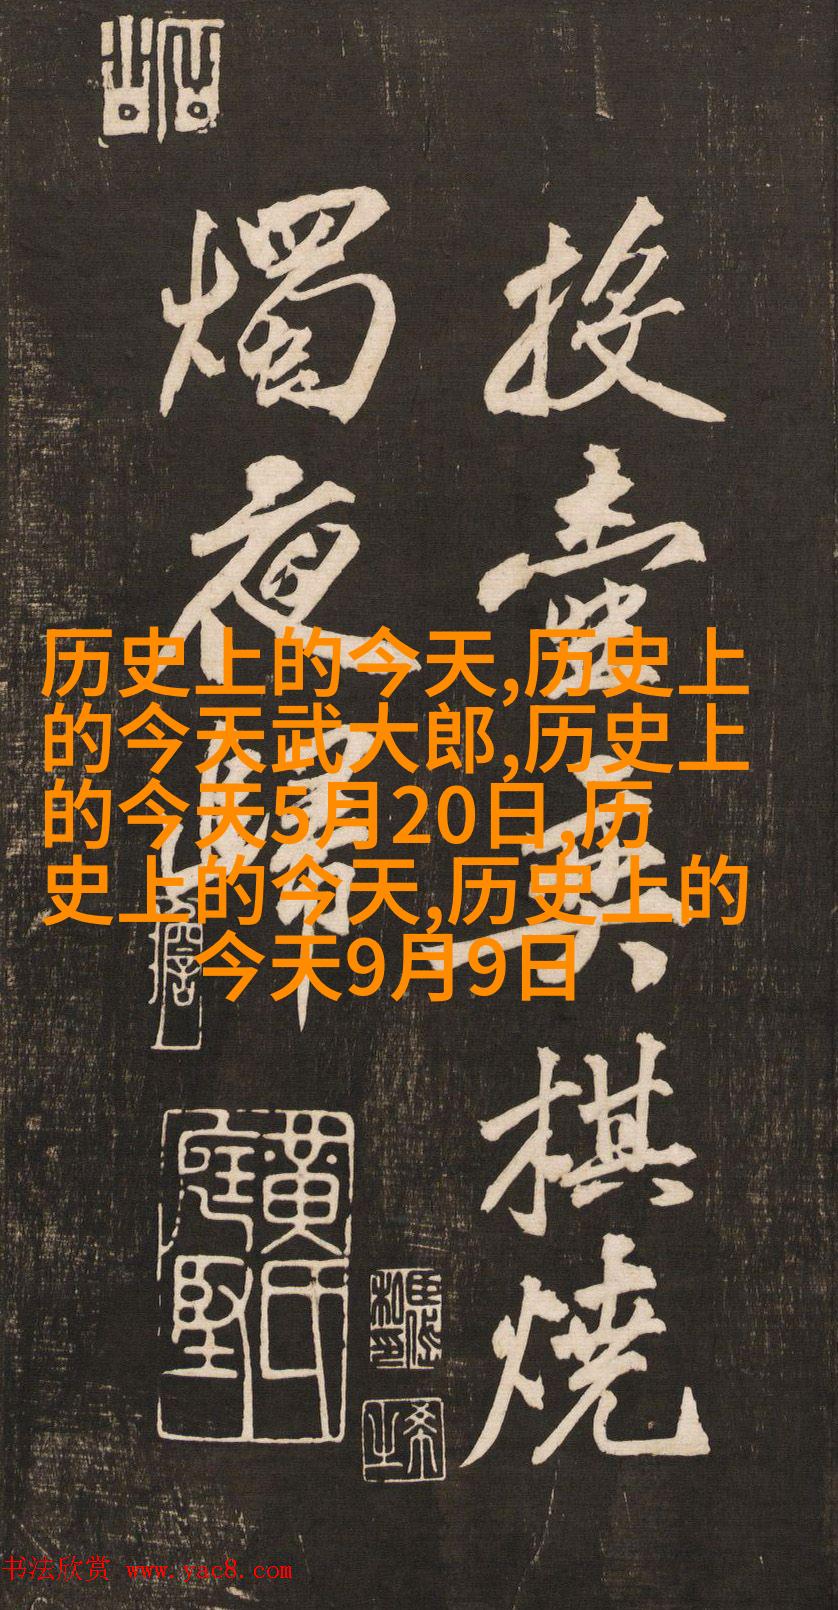 投壺奕棋燒
燭夜歸
历史上的今天,历史上
的今天武大郎,历史上
的今天5月20日,历
史上的今天,历史上的
今天9月9日
黃氏
庭堅
书法欣赏 www.yac8.com